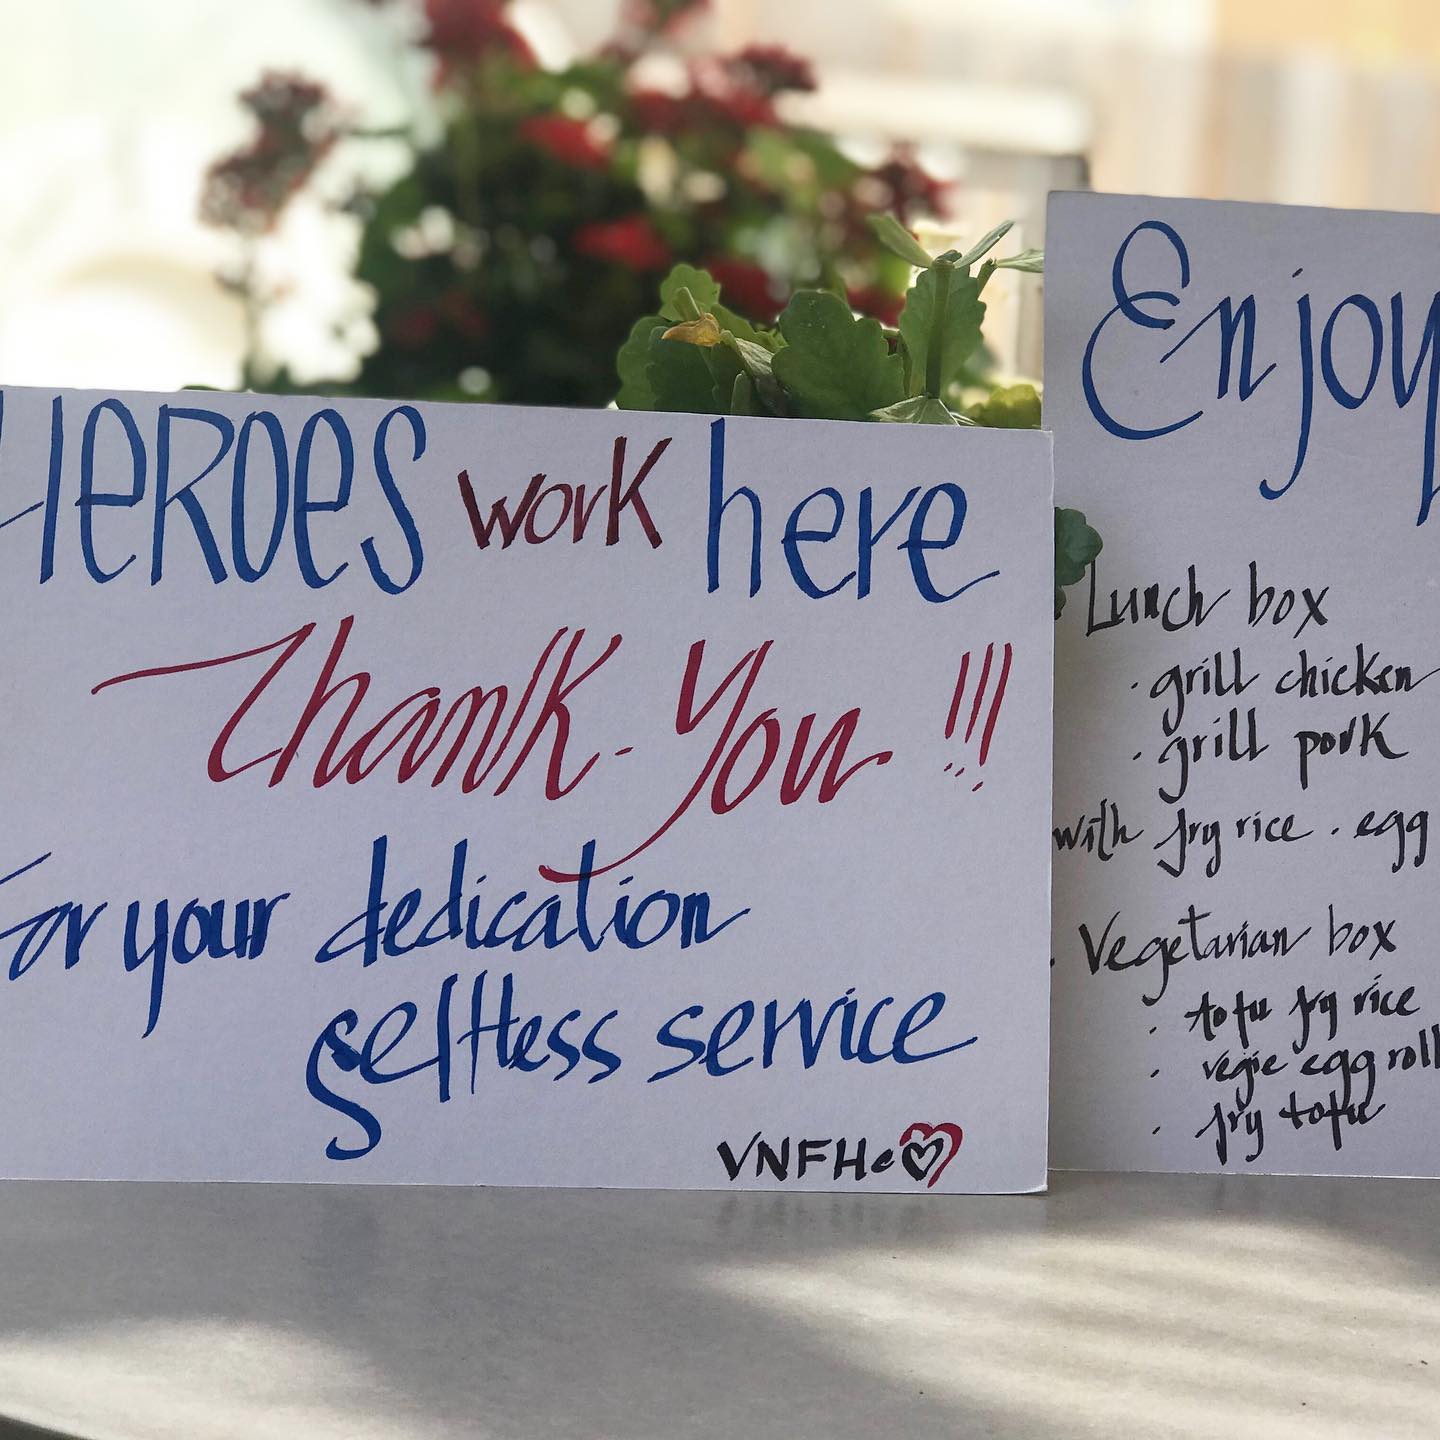 HeROes work here
Thank-You !!!
For your dedication
selfless service
VNFHC
Enjoy
Lunch box
. grill chicken
. grill pork
with fry rice . egg
. Vegetarian box
. tofu fry rice
. vegie egg roll
. fry tofu